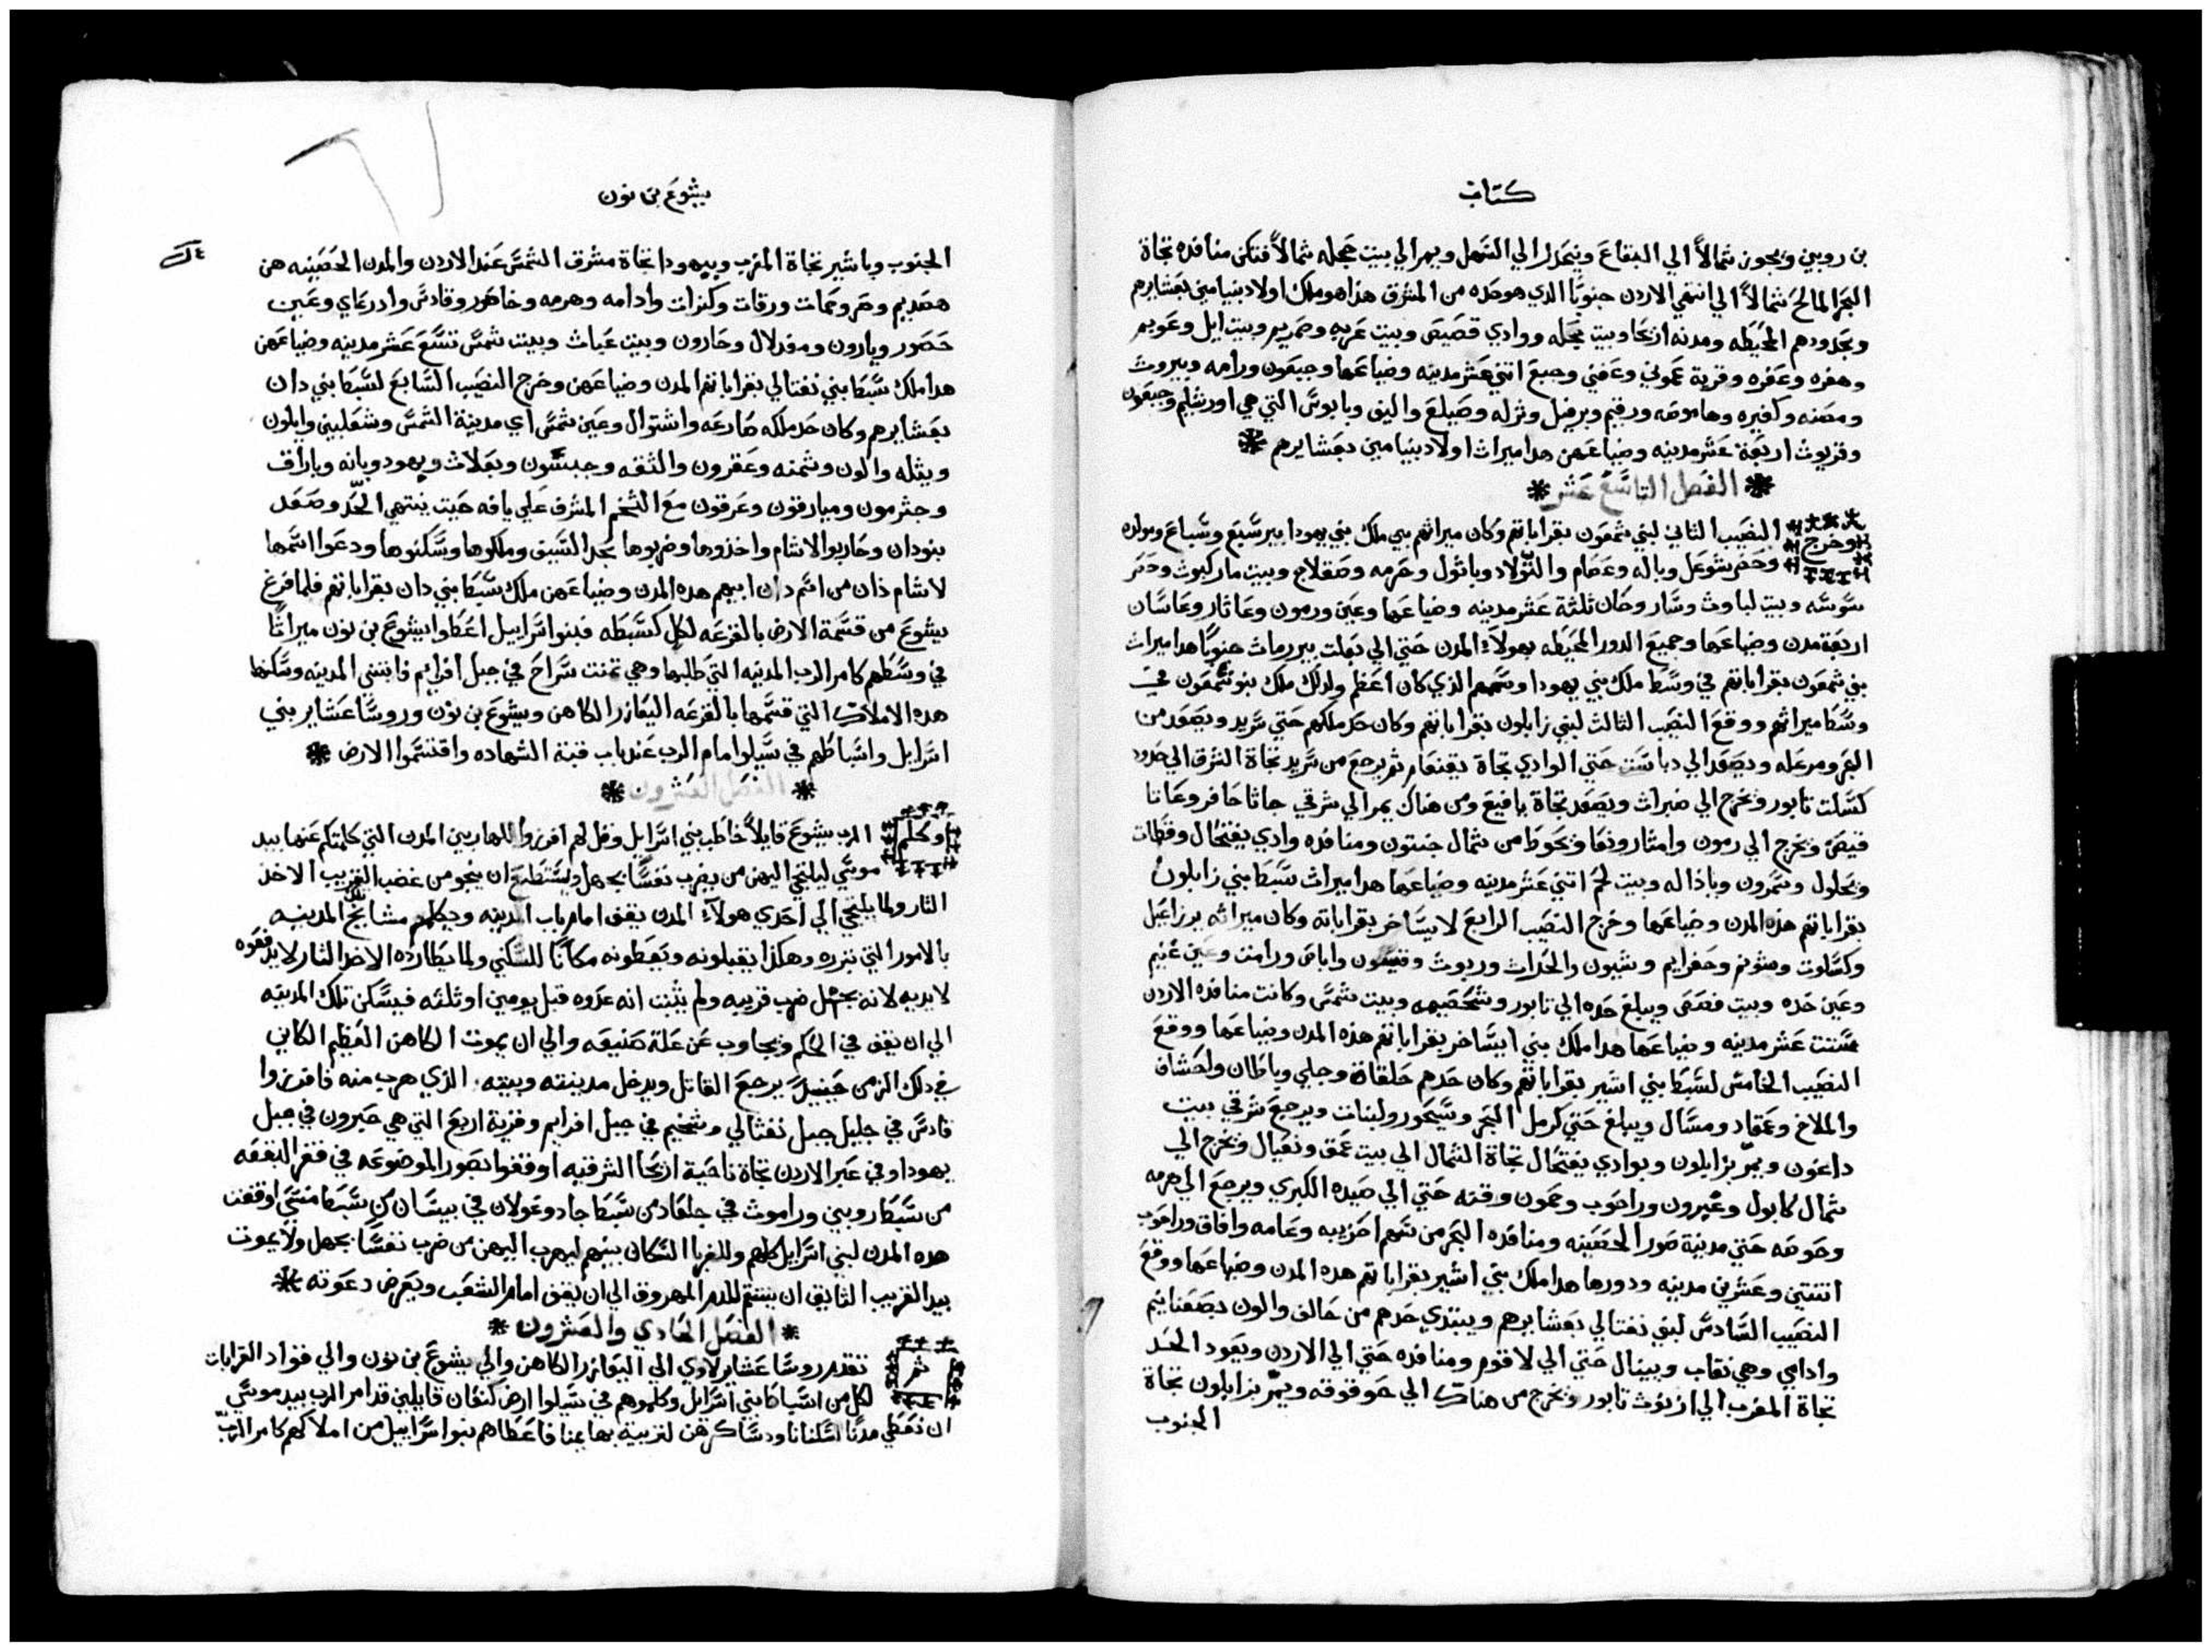 كتاب
بن روبين ويجوز شمالاً الي البقاع وينحدر الي السهل ويمر الي بيت حجله شمالاً فتكن منافده تجاة
البحر المالح شمالاً الي انتهي الاردن جنوبًا الذي هو حده من المشرق هذا هو ملك اولاد بنيامين بعشايرهم
وبحدودهم المحيطه ومدنه اريحا وبيت حجله ووادي قصيص وبيت عربه وصمريم وبيت ايل وعويم
وهفره وعفره وقرية عموني وعفني وجبع اثني عشر مدينه وضياعها وجبعون ورامه وبيروث
ومصنه وكفيره وهاموصه ورقيم ويرفيل وترله وصيلع واليف ويابوس التي هي اورشليم وجبعون
وقريوث اربعة عشر مدينه وضياعهن هدا ميراث اولاد بنيامين بعشايرهم
الفصل التاسع عشر
وخرج النصيب الثاني لبني شمعون بقراباتهم وكان ميراثهم بين ملك بني يهودا بيرسبع وسباع ومولاده
وحصر شوعل وباله وعصام والتولاد وباثول وحرمه وصقلاج وبيت ماركبوث وحصر
سوسه وبيت لباوث وسار وحان ثلثة عشر مدينه وضياعها وعين ورمون وعاثار وعاسان
اربعة مدن وضياعها وجميع الدور المحيطه بهولاء المدن حتي الي بعلت بير رماث جنوبًا هدا ميراث
بني شمعون بقراباتهم في وسط ملك بني يهودا وسهمهم الذي كان اعظم ولدلك ملك بنو شمعون في
وسط ميراثهم ووقع النصيب الثالث لبني زابلون بقراباتهم وكان حد ملكهم حتي سريد ويصعد من
البحر ومرعله ويصعد الي دباست حتي الوادي تجاة يقنعام ثم يرجع من سريد تجاة الشرق الي حدود
كسلت تابور ويخرج الي ضبراث ويصعد تجاة يافيع ومن هناك يمر الي شرقي جاثا حافر وعاتا
قيص ويخرج الي رمون وامثار ونعا ويحوط من شمال حنتون ومنافده وادي يفتحال وقطات
ونحلول وشمرون ويادا له وبيت لحم اثني عشر مدينه وضياعها هدا ميراث سبط بني زابلون
بقراباتهم هذه المدن وضياعها وخرج النصيب الرابع لايساخر بقراباته وكان ميراثه يرزاعيل
وكسلوت وشونم وحفرايم وشيون والحرات وربوث وقيشون واباص ورامت وعين غنيم
وعين حده وبيت فصص ويبلغ حده الي تابور وشخصيمه وبيت شمس وكانت منافده الاردن
ستت عشر مدينه وضياعها هدا ملك بني ايساخر بقراباتهم هذه المدن وضياعها ووقع
النصيب الخامس لسبط بني اشير بقراباتهم وكان حدهم حلقاة وحلي وباطان واكشاف
والملاخ وعماد ومسال ويبلغ حتي كرمل البحر وسيحور ولبنات ويرجع شرقي بيت
داغون ويمر بزابلون وبوادي يفتحال تجاة الشمال الي بيت عمق ونعيال ويخرج الي
شمال كابول وعبرون وراحوب وحمون وقنه حتي الي صيده الكبري ويرجع الي هرمه
وحوصه حتي مدينة صور الحصينه ومنافده البحر من سهم اخزيبه وعامه وافاق وراحوب
اثنتين وعشرين مدينه ودورها هدا ملك بني اشير بقراباتهم هده المدن وضياعها ووقع
النصيب السادس لبني نفتالي بعشايرهم ويبتدي حدهم من حالف والون بصعنايم
وادامي وهي نقاب ويبنال حتي الي لاقوم ومنافده حتي الي الاردن ويعود الحد
تجاة المغرب الي ازنوث تابور ويخرج من هناك الي حوقوقه ويمر بزابلون تجاة
الجنوب
يشوع بن نون
الجنوب وباشير تجاة المغرب وبيهودا تجاة مشرق الشمس عند الاردن والمدن الحصينه هن
هصديم وصر وحمات ورقات وكنرات وادامه وهرمه وحاصور وقادس وادرعاي وعين
حصور ويارون ومغدلال وحارون وبيت عباث وبيت شمس تسع عشر مدينه وضياعهن
هدا ملك سبط بني نفتالي بقراباتهم المدن وضياعهن وخرج النصيب السابع لسبط بني دان
بعشايرهم وكان حد ملكه صارعه واشتوال وعين شمس اي مدينة الشمس وشعلبين وايلون
ويثله والون وثمنه وعقرون والثقه وجبثون وبعلاث ويهود وبانه وباراق
وجثرمون ومياه رقون وعرقون مع التخم المشرف علي يافه حيت ينتهي الحد وصعد
بنو دان وحاربوا لاشام واخذوها وضربوها بحد السيف وملكوها وسكنوها ودعوا اسمها
لاشام ذان من اسم دان ابيهم هده المدن وضياعهن ملك سبط بني دان بقراباتهم فلما فرغ
يشوع من قسمة الارض بالقرعه لكل كسبطه فبنوا اسراييل اعطوا يشوع بن نون ميراثًا
في وسطهم كامر الرب المدينه التي طلبها وهي تمنت سراح في جبل افرايم فابتني المدينه وسكنها
هده الاملاك التي قسمها بالقرعه اليعازر الكاهن ويشوع بن نون وروسا عشاير بني
اسرايل واسباطهم في سيلوا امام الرب عند باب قبة الشهاده واقتسموا الارض
الفصل العشرون
وكلم الرب يشوع قايلاً خاطب بني اسرايل وقل لهم افرزوا للهاربين المدن التي كلمتكم عنها بيد
موسي ليلتجي اليهن من يضرب نفسًا بجهل ويستطيع ان ينجو من غضب القريب الاخذ
الثار ولما يلتجي الي احدي هولاء المدن يقف امام باب المدينه ويكلم مشايخ المدينه
بالامور التي تبرره وهكذا يقبلونه ويعطونه مكانًا للسكني ولما يطارده الاخد الثار لا يدفعوه
لايديه لانه بجهل ضرب قريبه ولم يثبت انه عدوه قبل يومين او ثلثه فيسكن تلك المدينه
الي ان يقف في الحكم ويجاوب عن علة صنيعه والي ان يموت الكاهن العظيم الكاين
في دلك الزمن حينيذ يرجع القاتل ويدخل مدينته وبيته الذي هرب منه فافرزوا
قادس في جليل جبل نفتالي وشخيم في جبل افرايم وقرية اربع التي هي حبرون في جبل
يهودا وفي عبر الاردن تجاة ناحية اريحا الشرقيه اوقفوا بصور الموضوعه في قفر البقعه
من سبط روبني وراموث في جلعاد من سبط جاد وغولان في بيسان من سبط منسي اوقفت
هده المدن لبني اسرايل كلهم وللغربا السكان بينهم ليهرب اليهن من ضرب نفسًا بجهل ولا يموت
بيد القريب التايق ان ينتقم للدم المهروق الي ان يقف امام الشعب ويعرض دعوته
الفصل الحادي والعشرون
ثم تقدم روسا عشاير لاوي الي اليعازر الكاهن والي يشوع بن نون والي قواد القرابات
لكل من اسباط بني اسرايل وكلموهم في سيلوا ارض كنعان قايلين قد امر الرب بيد موسي
ان نعطي مدنًا لسكنانا ودساكرهن لتربية بهايمنا فاعطاهم بنوا اسراييل من املاكهم كامر الرب